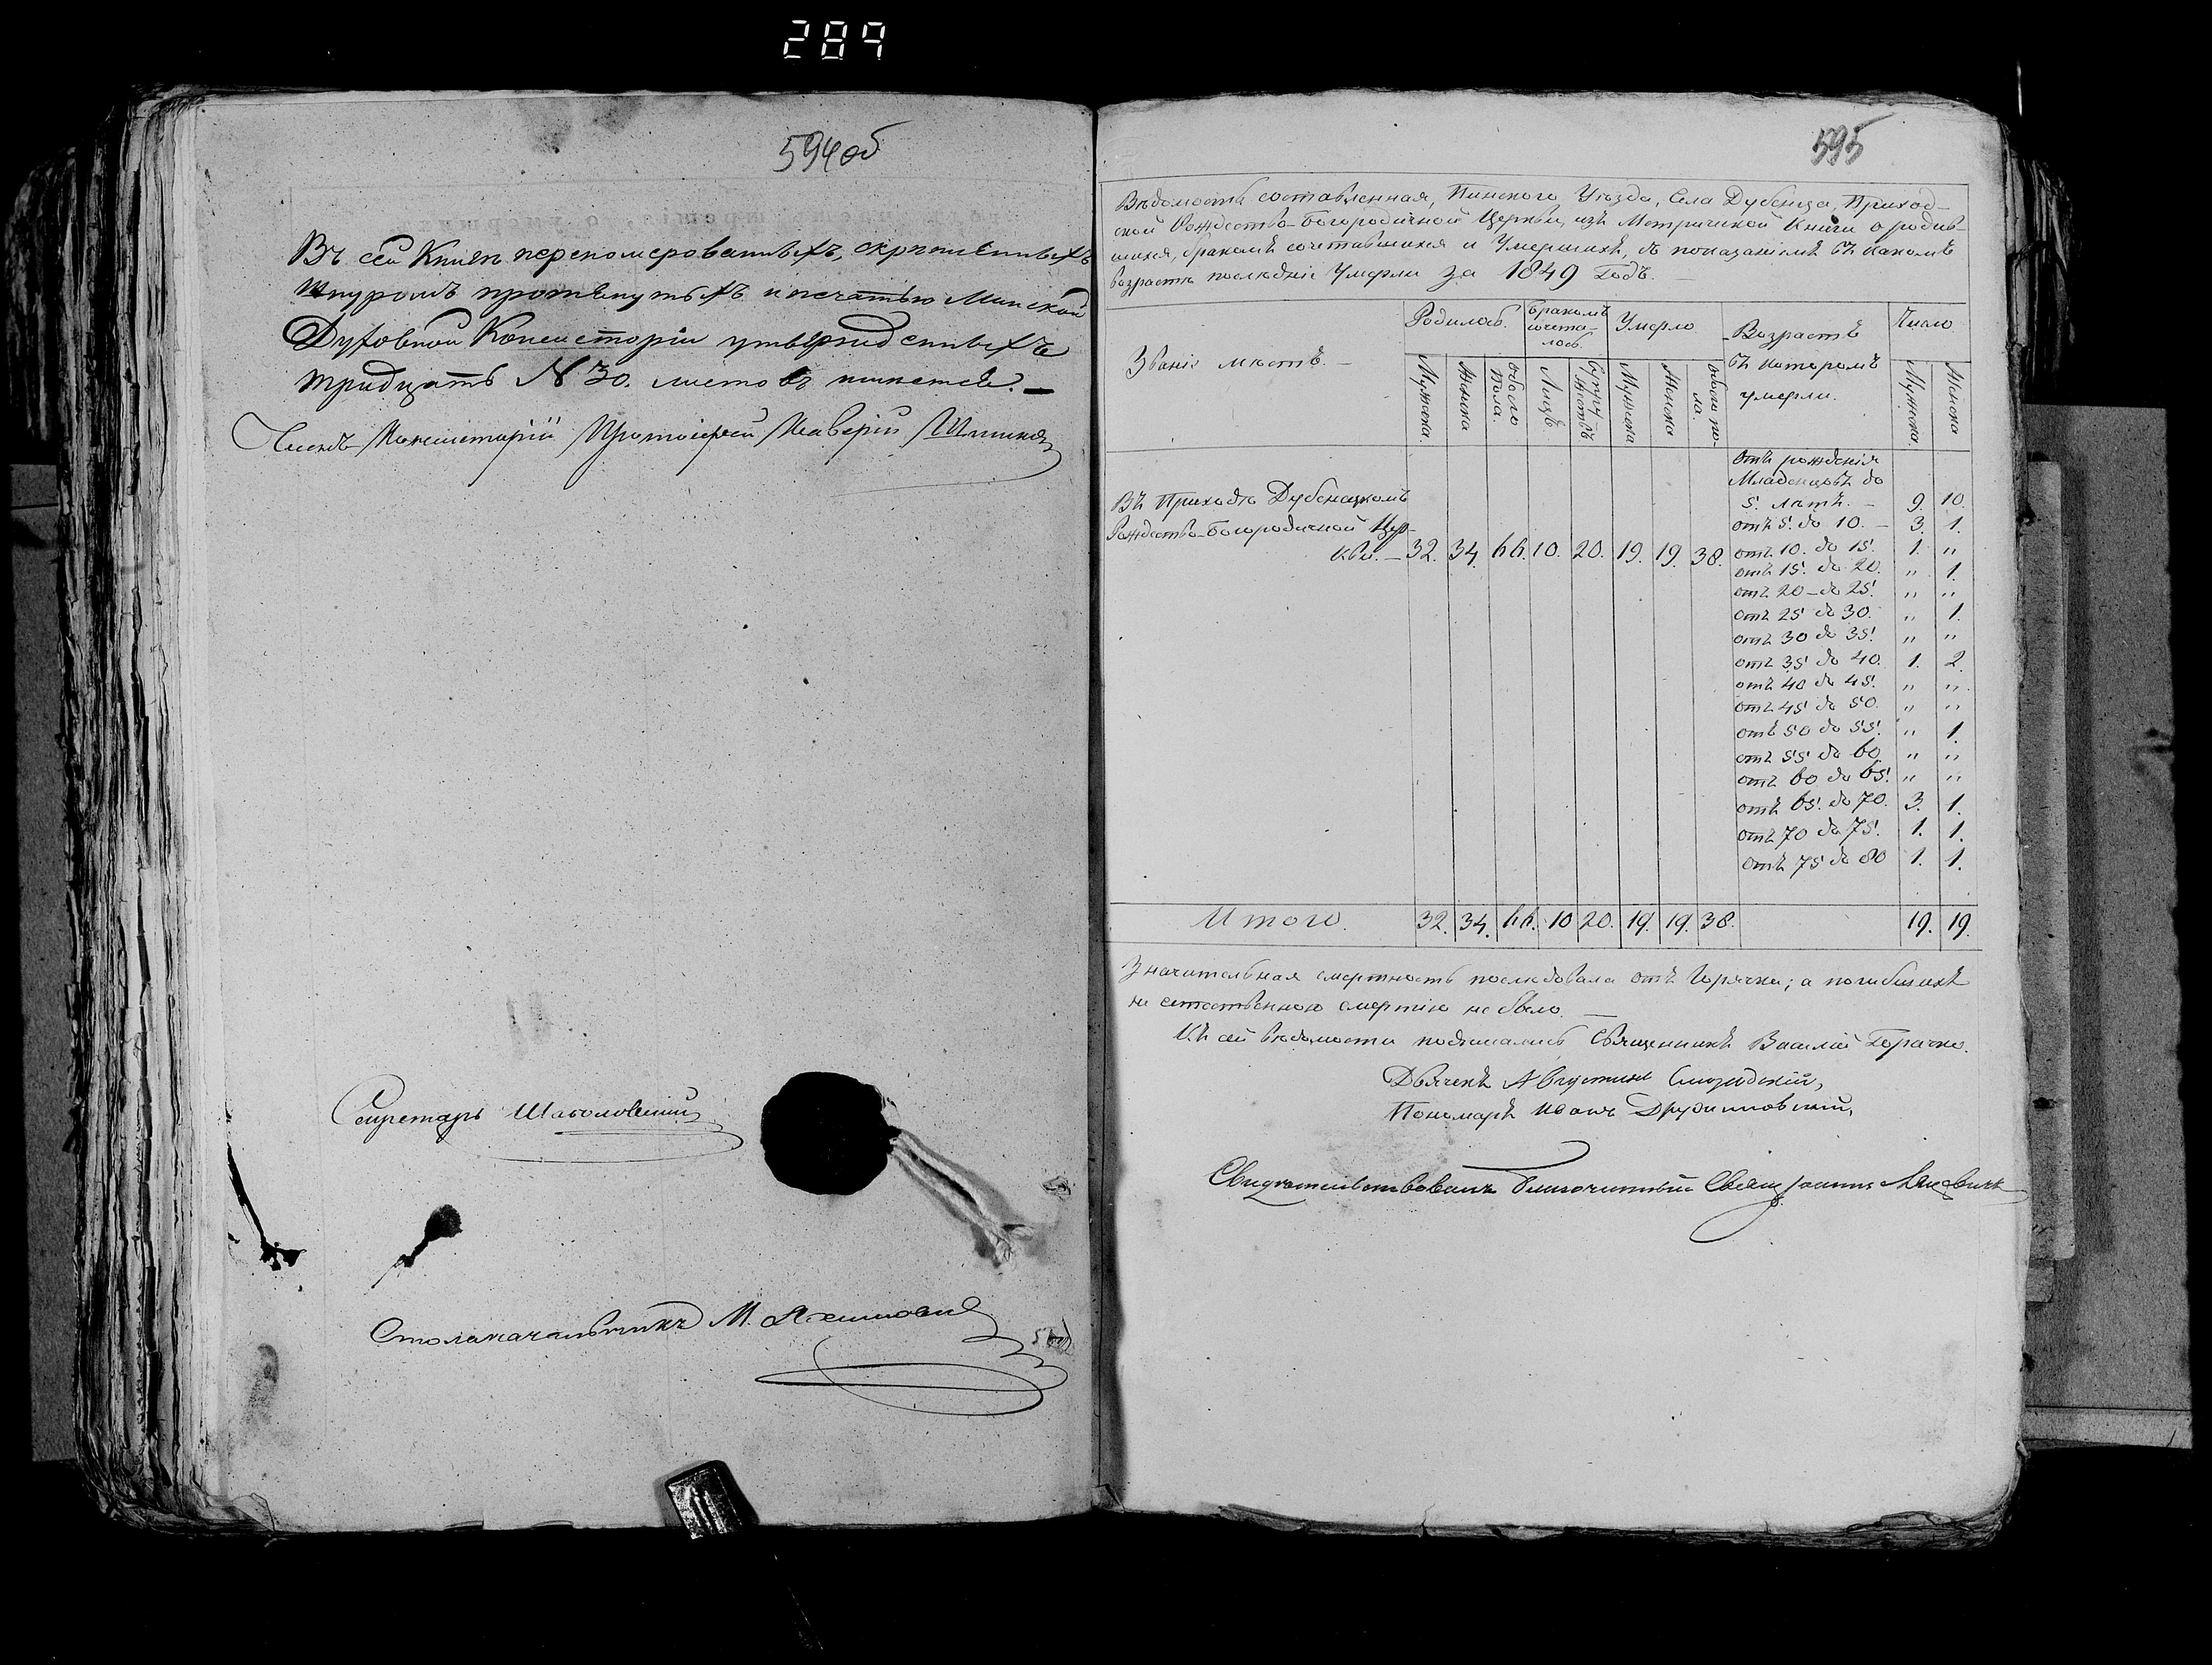 289
594об
Въ сей Книгѣ перепомерованныхъ, скрѣпленныхъ
шнуромъ протянутыхъ и печатью Минской
Духовной Консисторіи утвержденныхъ
тридцать N 30. листовъ имѣется. —
Членъ Консисторіи Протоіерей
Секретарь
Столоначальникъ М.
595
Вѣдомость составленная, Пинского Уѣзда, Села Дубенца, Приход-
ской Рождество-Богородичной Церкви, изъ Метрической Книги о родив-
шихся, бракомъ сочетавшихся и Умершихъ, съ показаніемъ въ какомъ
возрастѣ послѣдніе Умерли за 1849 Годъ. —
Званіе мѣстъ. —
Родилось. Бракомъ сочета-лось. Умерло Возрастъ въ которомъ умерли. Число
Мужеска. Женска Обоего пола. Лицъ. Супружествъ Мужеска Женска обоего по-ла. Мужеска. Женска
Въ Приходѣ Дубенецкомъ
Рождество-Богородичной Цер-
кви. — 32. 34. 66. 10. 20. 19. 19. 38.
Отъ рожденія
Младенцовъ до
5. лѣтъ. — 9. 10.
отъ 5. до 10. — 3. 1.
отъ 10. до 15. 1. "
отъ 15. до 20. " 1.
отъ 20 — до 25. " "
отъ 25 до 30. " 1.
отъ 30 до 35. " "
отъ 35 до 40. 1. 2.
отъ 40 до 45. " "
отъ 45 до 50. " "
отъ 50 до 55. " 1.
отъ 55 до 60 " "
отъ 60 до 65. " "
отъ 65. до 70. 3. 1.
отъ 70 до 75. 1. 1.
отъ 75 до 80 1. 1.
Итого. 32. 34. 66. 10 20. 19. 19. 38. 19. 19.
Значительная смертность послѣдовала отъ Горячки; а погибшихъ
не естественною смертію не было. —
Къ сей вѣдомости подписались Священникъ Василій Горачко.
Дьячекъ Августинъ
Пономарь Иванъ
Свидѣтельствовалъ Благочинный Свящ. Іоаннъ